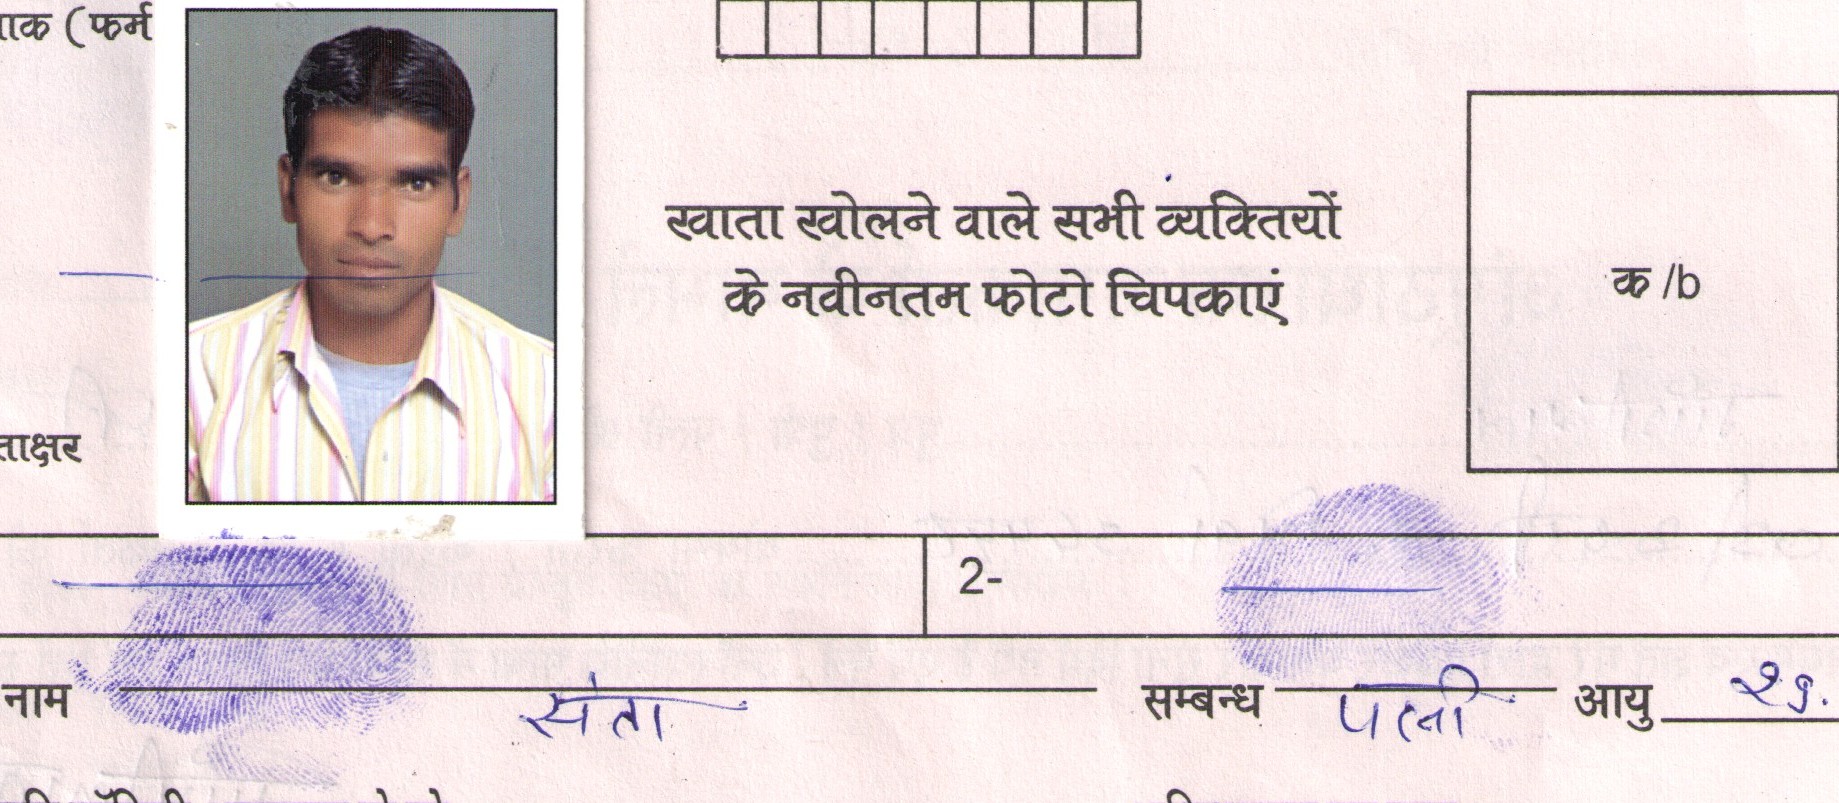 ाक (फर्म
खाता खोलने वाले सभी व्यक्तियों
के नवीनतम फोटो चिपकाएं
क /b
ताक्षर
2-
नाम संता सम्बन्ध पत्नी आयु